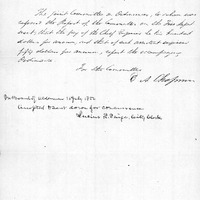 The Joint Committee on Ordinances, to whom was
referred the Report of the Committee on the Fire Depart-
ment, that the pay of the Chief Engineer be six hundred
dollars per annum, and that of each assistant engineer
fifty dollars per annum, report the accompanying
Ordinance.
For the Committee
C. A. Chapman
In Board of Aldermen 1852
Accepted & sent down for concurrence
Lucius R. Paige, City Clerk